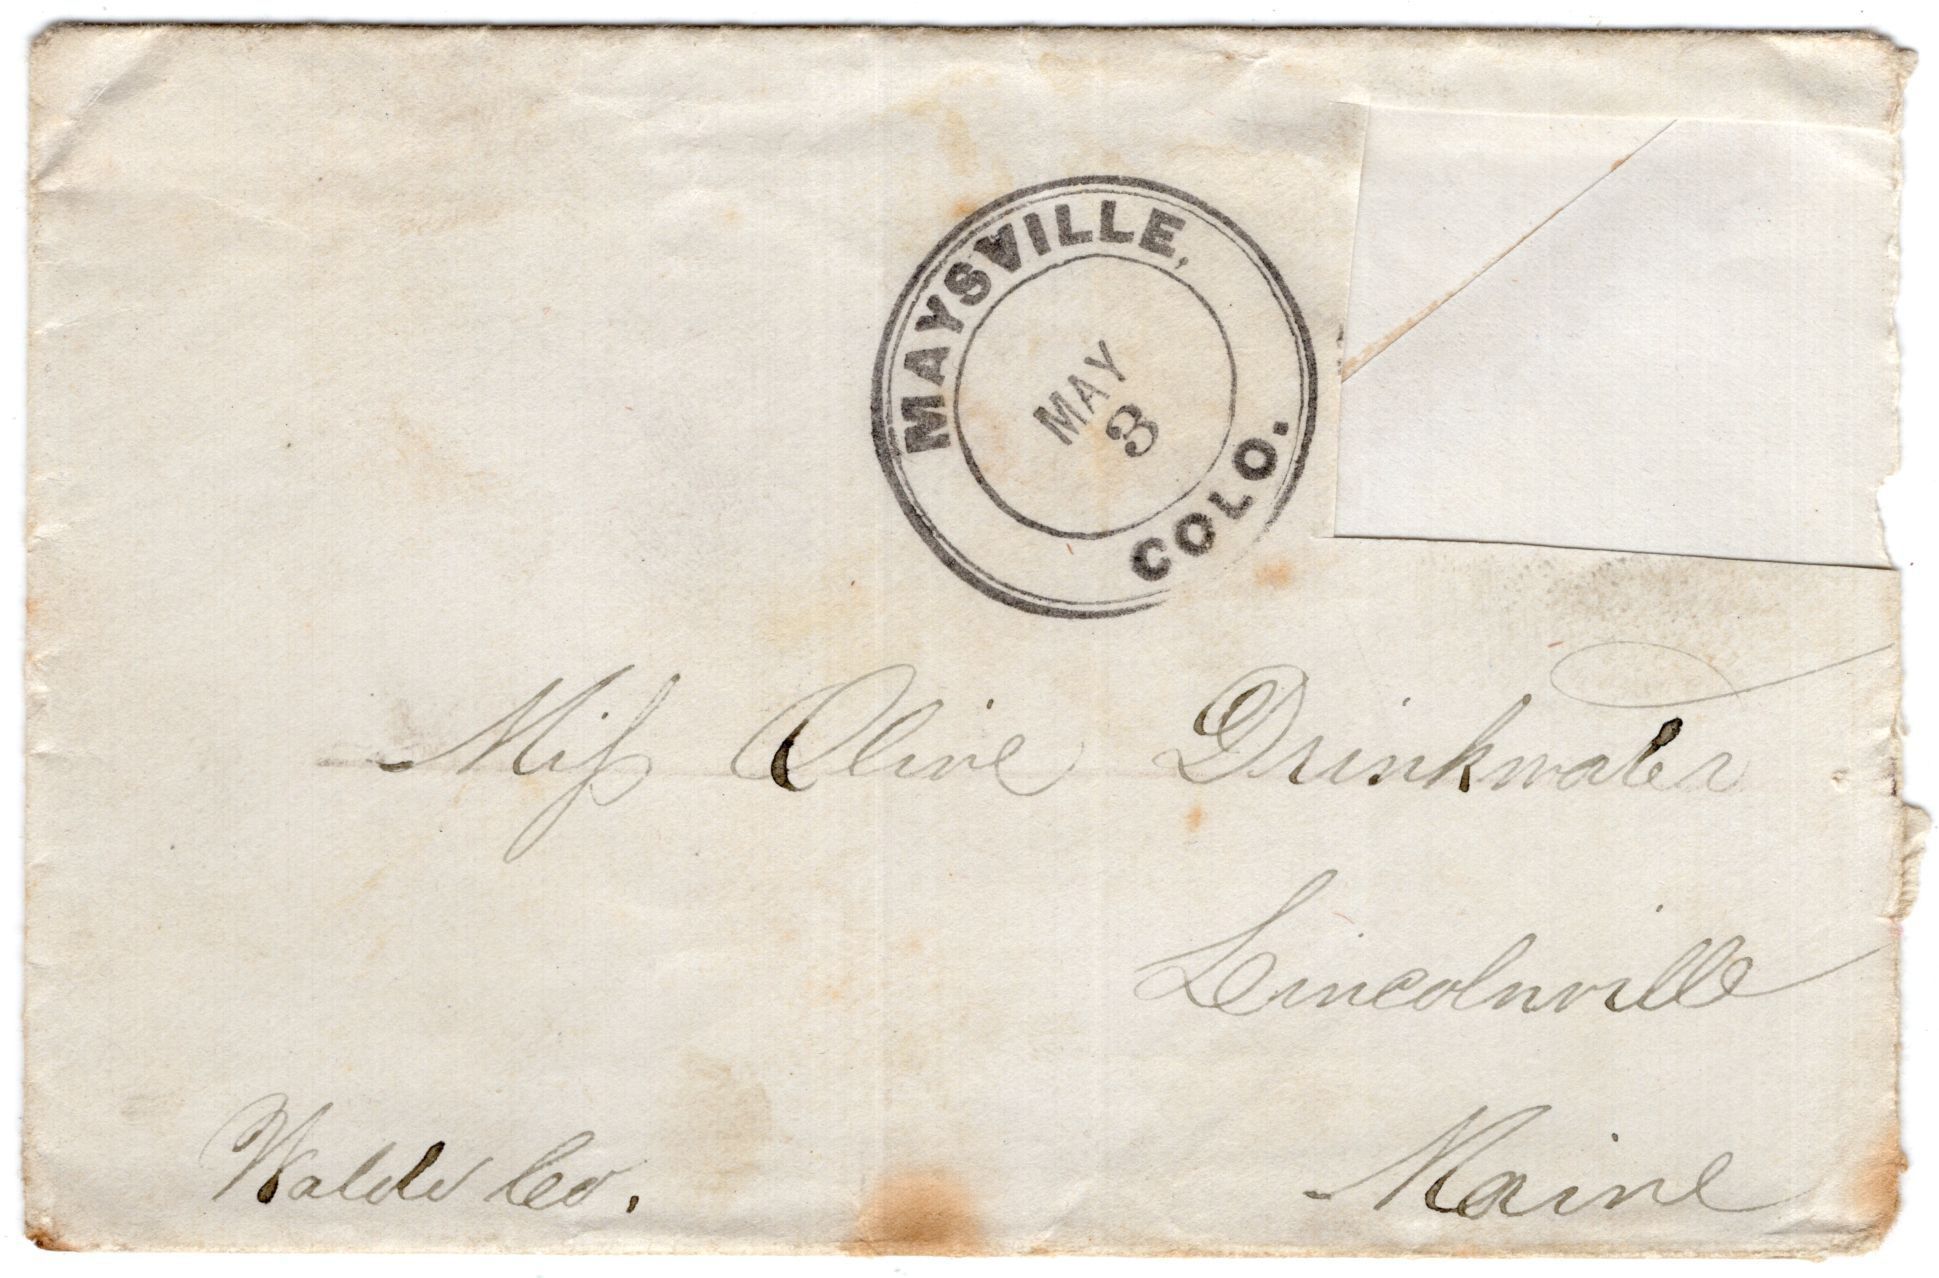 MAYSVILLE,
COLO.
MAY
3
Miss Olive Drinkwater
Lincolnville
Maine
Waldo Co.